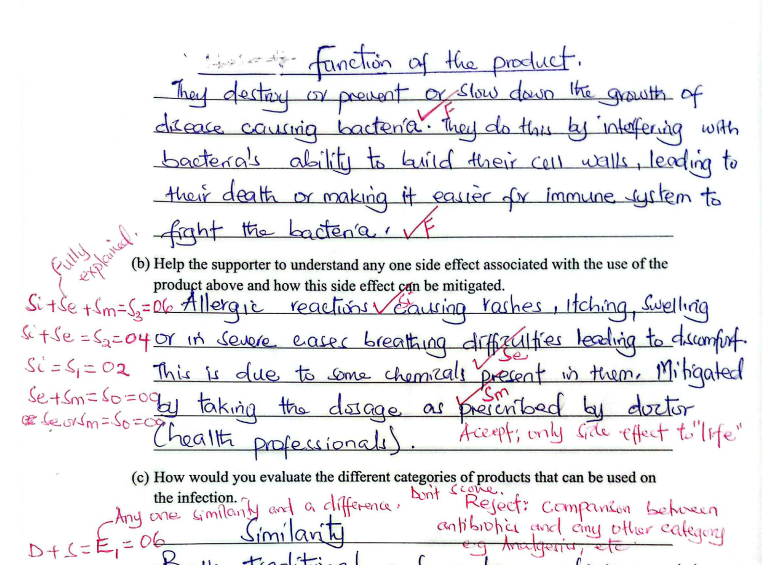 function of the product.
They destroy or prevent or slow down the growth of
F
disease causing bacteria. They do this by interfering with
bacteria's ability to build their cell walls, leading to
their death or making it easier for immune system to
fight the bacteria. F
Fully explained.
(b) Help the supporter to understand any one side effect associated with the use of the
product above and how this side effect can be mitigated.
Si
Si+Se+Sm=S3=06 Allergic reactions causing rashes, Itching, Swelling
Si+Se=S2=04 or in severe cases breathing difficulties leading to discomfort.
Se
Si=S1=02 This is due to some chemicals present in them. Mitigated
Sm
Se+Sm=S0=00 by taking the dosage as prescribed by doctor
Se or Sm=S0=00
(health professionals). Accept; only side effect to "life"
(c) How would you evaluate the different categories of products that can be used on
the infection. Don't score.
Any one similarity and a difference. Reject: Comparison between
D+S=E1=06 Similarity antibiotics and any other category
e.g Analgesics, etc
traditional